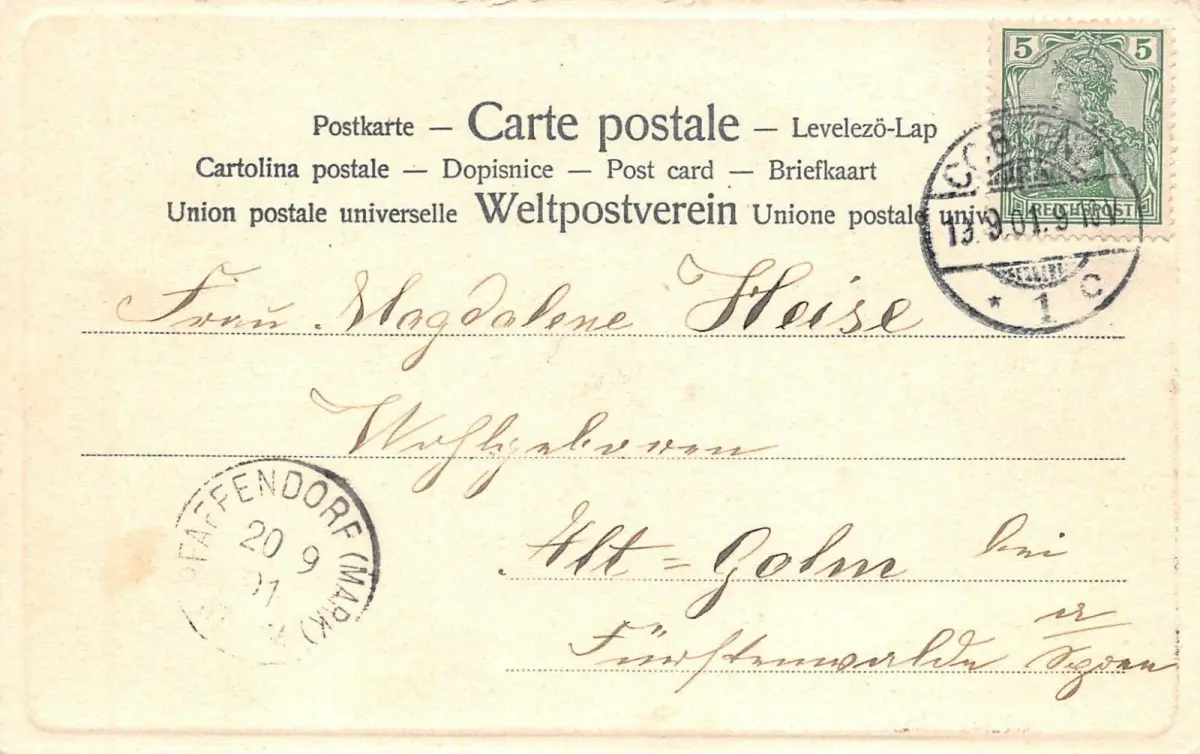 5 5
Postkarte — Carte postale — Levelezö-Lap
Cartolina postale — Dopisnice — Post card — Briefkaart
Union postale universelle Weltpostverein Unione postale univ
REICHSPOST
COBLENZ
19.9.01.9-10V
* 1 C
Frau Magdalene Heise
Wohlgeboren
PFAFFENDORF (MARK)
20 9
01
Alt=Golm bei
Fürstenwalde a/ Spree